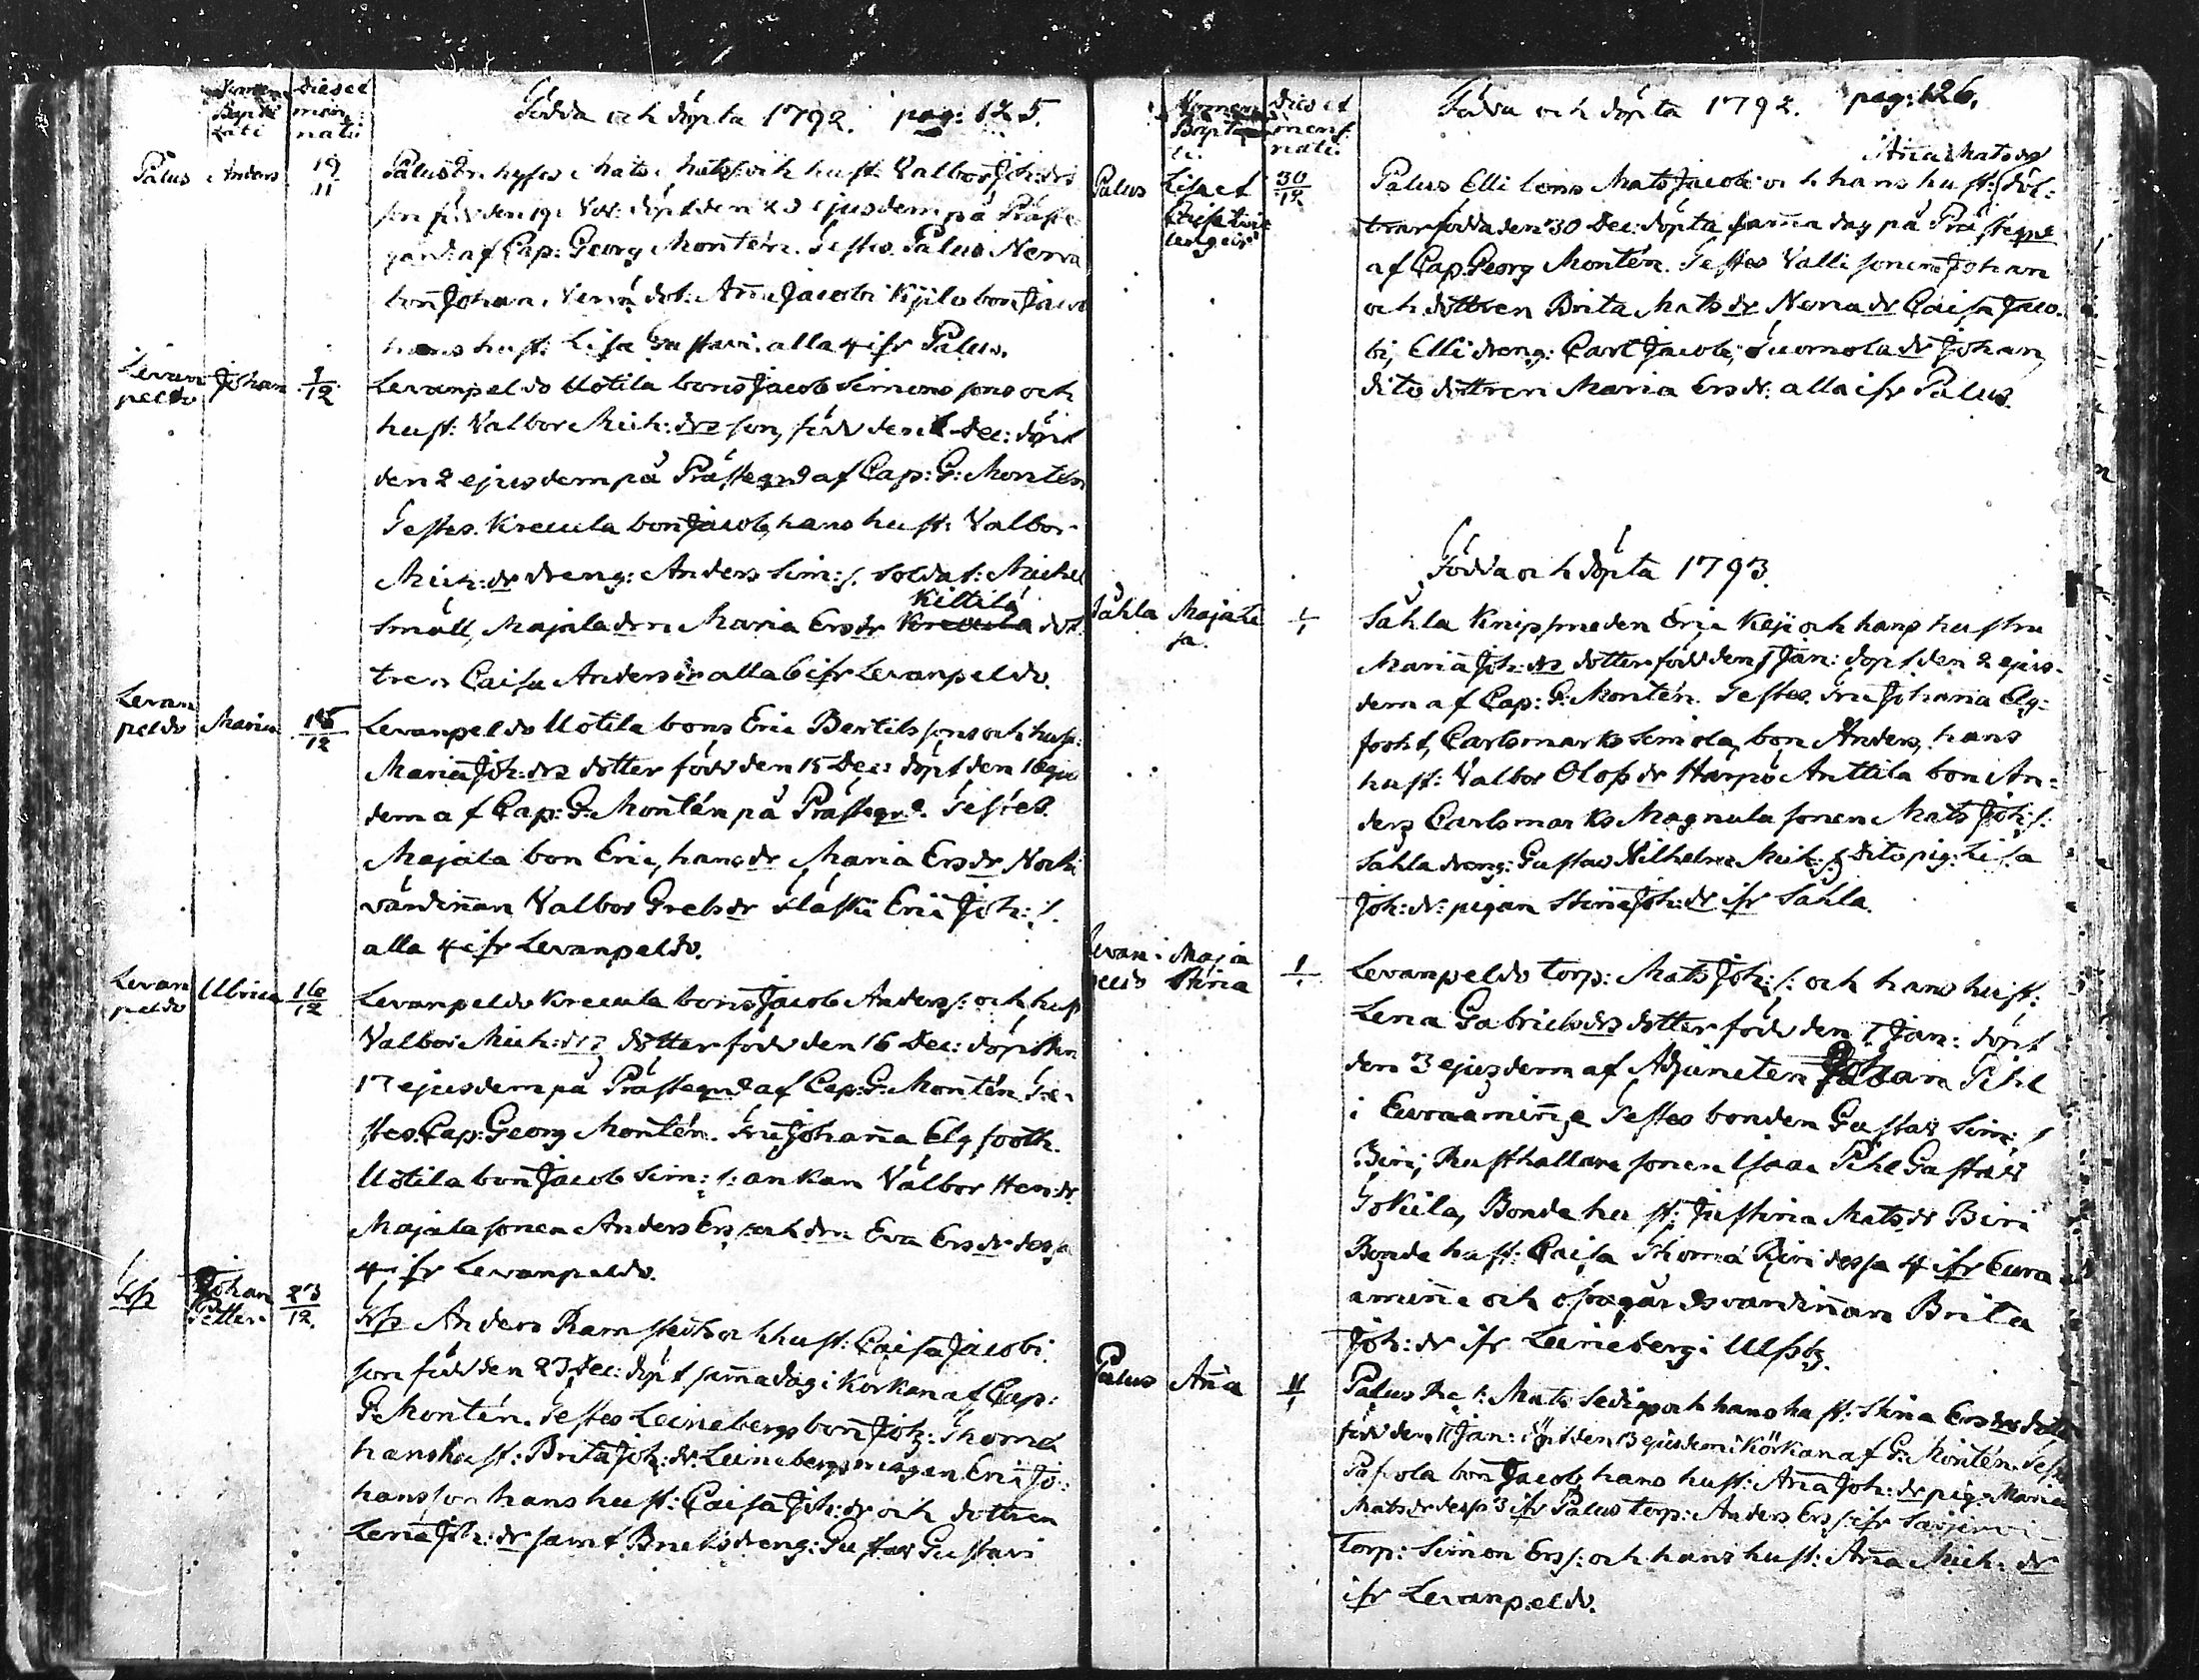 Nomen Bapti zati
dies et mens: nati
Födda och döpta 1792. pag: 125.
Palus Anders 19/11
Palus Dr. hyses Mats Mats s: och hust: Valbor Joh: drs
son född den 19 Nov: döpt den 20 ejusdem på Präste
gård: af Cap: Georg Montén. Testes. Palus Nerva
bon Johan, Nerva dot: Anna Jacobi Kijlo bon Jacob
hans hust: Lisa Gustavi. alla 4 ifr Palus.
Levan peldo Johan 1/12
Levanpeldo Uotila bons Jacob Simons sons och
hust: Valbor Mich: drs son, född den 1 Dec: döpt
den 2 ejusdem på Prästegrd af Cap: G: Montén
Testes. Kreeula bon Jacob, hans hust: Valbor
Mich: dr dreng: Anders Sim: s. soldat: Michel
Kiltilä
Smäll, Majala drn Maria Ers dr Kreeula döt
tren Caisa Anders dr alla 6 ifr Levanpeldo.
Levan peldo Maria 15/12
Levanpeldo Uotila bons Eric Bertils sons och hust:
Maria Joh: drs dotter född den 15 Dec: döpt den 16 ejus
dem af Cap: G: Montén på Prästegrd. Testes.
Majala bon Eric, hans dr Maria Ers dr Nocki
värdinnan Valbor Grels dr Eric Joh: s.
alla 4 ifr Levanpeldo.
Levan peldo Ulrica 16/12
Levanpeldo Kreeula bons Jacob Anders s: och hust
Valbor Mich: drs dotter född den 16 Dec: döpt den
17 ejusdem på Prästegrd af Cap: G: Montén Te-
stes. Cap: Georg Montén. Fru Johanna Elgfooth.
Uotila bon Jacob Sim: s: ankan Valbor Hen: dr.
Majala sonen Anders Ers s: och drn Eva Ers dr dessa
4 ifr Levanpeldo.
Johan Petter 23/12.
Anders Ramstedts och hust: Caisa Jacobi
son född den 23 Dec: döpt samma dag i Körkan af Cap:
G. Montén. Testes Leinebergs bon Joh: Thomæ
hans hust: Brita Joh: dr. Leinebergs mågen Eric Jo-
hansson hans hust: Caisa Joh: dr och dottren
Lena Joh: dr samt Bruks dreng: Gustav Gustavi
Nomen Bapta ti.
dies et mens nati.
Födda och döpta 1792. pag: 126.
Anna Mats drs
Palus Lisa et Caisa 30/12
Palus Elli bons Mats Jacobi och hans hust: döt-
trar födda den 30 Dec: döpta samma dag på Prästegrd
af Cap. Georg Montén. Testes Valli sonen Johan
och dottren Brita Mats dr Nerva dr Caisa Jaco-
bi, Elli dreng: Carl Jacobi, Suomola dr Johan,
dito dottren Maria Ers dr. alla ifr Palus.
Födda och döpta 1793.
Sahla Maja Li sa. 1/1
Sahla Knipsmeden Eric Keji och hans hustru
Maria Joh: drs dotter född den 1 Jan: döpt den 2 ejus-
dem af Cap: G: Montén. Testes. Fru Johanna Elg-
fooht, Carlsmarks Simola, bon Anders, hans
hust: Valbor Olofs dr Harpo Anttila bon An-
ders Carlsmarks Magnula sonen Mats Joh: s:
Sahla dreng: Gustav Wilhelm Mich: s: dito pig: Lisa
Joh: dr: pigan Stina Joh: dr ifr Sahla.
Levan peldo Maja Stina 1/1
Levanpeldo torp: Mats Joh: s: och hans hust:
Lena Gabriels drs dotter född den 1 Jan: döpt
den 3 ejusdem af Adjuncten Johan Pihl
i Euraaminne Testes bonden Gustav Sim: s
Biri, Rusthallare sonen Isaac Pihl Gustav
Tokila, Bonde hust: Justina Mats dr Biri
Bonde hust: Caisa Thomæ Biri dessa 4 ifr Eura
aminne och ofragårds vardinnan Brita
Joh: dr ifr Leineberg i Ulfsby.
Palus Anna 11/1
Palus Mats Sedig och hans hust: Stina Ers drs dotter
född den 11 Jan: döpt den 13 ejusdem i Körkan af G: Montén. Test
bon Jacob, hans hust: Anna Joh: dr pig: Maria
Mats dr dessa 3 ifr Palus torp: Anders Ers s: ifr
Torp: Simon Ers s: och hans hust: Anna Mich: dr
ifr Levanpeldo.